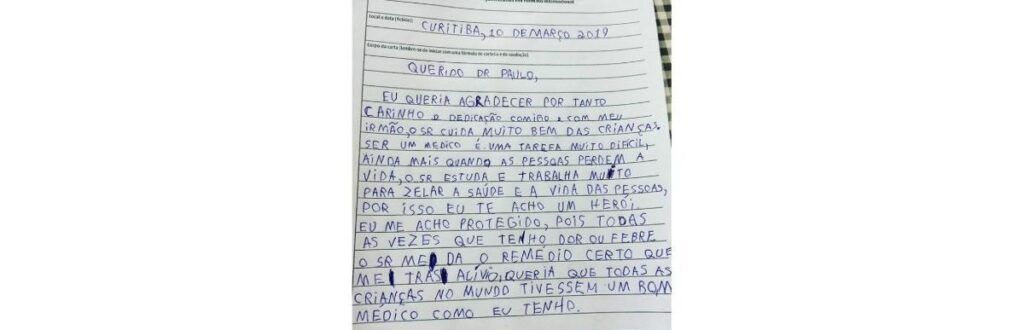 Local e data (fictício)
CURITIBA, 10 DE MARÇO 2019
Corpo da carta (lembre-se de iniciar com uma fórmula de cortesia e de saudação)
QUERIDO DR PAULO,
EU QUERIA AGRADECER POR TANTO
CARINHO e DEDICAÇÃO COMIGO e COM MEU
IRMÃO, O SR CUIDA MUITO BEM DAS CRIANÇAS.
SER UM MEDICO É UMA TAREFA MUITO DIFICIL,
AINDA MAIS QUANDO AS PESSOAS PERDEM A
VIDA, O SR ESTUDA E TRABALHA MUITO
PARA ZELAR A SAÚDE E A VIDA DAS PESSOAS,
POR ISSO EU TE ACHO UM HEROI.
EU ME ACHO PROTEGIDO, POIS TODAS
AS VEZES QUE TENHO DOR OU FEBRE
O SR ME DA O REMÉDIO CERTO QUE
ME TRÁS ALÍVIO, QUERIA QUE TODAS AS
CRIANÇAS NO MUNDO TIVESSEM UM BOM
MÉDICO COMO EU TENHO.